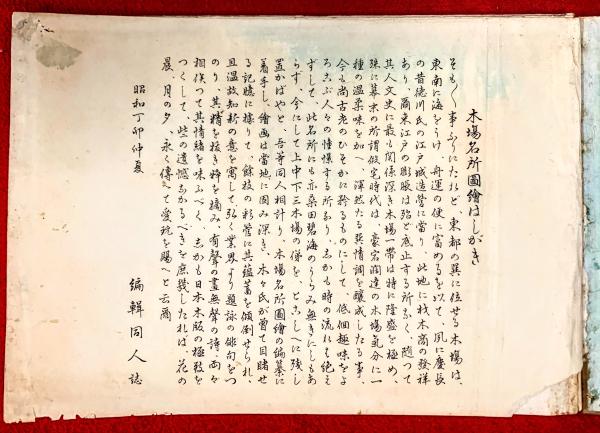 木場名所圖繪はしがき
そも〳〵事ふりにたれど、東都の巽に位せる木場は、
東南に海をうけ、舟運の便に富めるを以て、夙に慶長
の昔德川氏の江戸城造營に當り、此地に材木商の發祥
あり、爾來江戸の膨脹は殆ど底止する所なく、隨つて
其人文史に最も關係深き木場一帶は特に隆盛を極め、
殊に幕末の所謂假宅時代は、豪宕濶達の木場氣分に一
種の温柔味を加へ、渾然たる異情調を釀成したる事、
今も尚古老のひそかに矜るものにして、低徊趣味をよ
ろこぶ人々の憧憬する所なり、しかも時の流れは絶え
ずして、此名所にも亦桑田碧海のうらみ無きにしもあ
らず、今にして上中下三木場の俤を、とこしへに殘し
置かばやと、吾等同人相計り、木場名所圖繪の編纂に
着手し、繪画は當地に因み深き、木々氏が曾て目睹せ
る記憶に據りて、餘技の彩管に其蘊蓄を傾倒せられ、
且温故知新の意を寓して、弘く業界より題詠の俳句をつ
のり、其精を拔き粹を摘み、有聲の畫無聲の詩、両々
相俟つて其情緒を味ふべく、しかも日本木版の極致を
つくして、些の遺憾なからしむべきを庶幾したれば、花の
晨、月の夕、永く傳へて愛玩を賜へと云爾
昭和丁卯仲夏
編輯同人誌